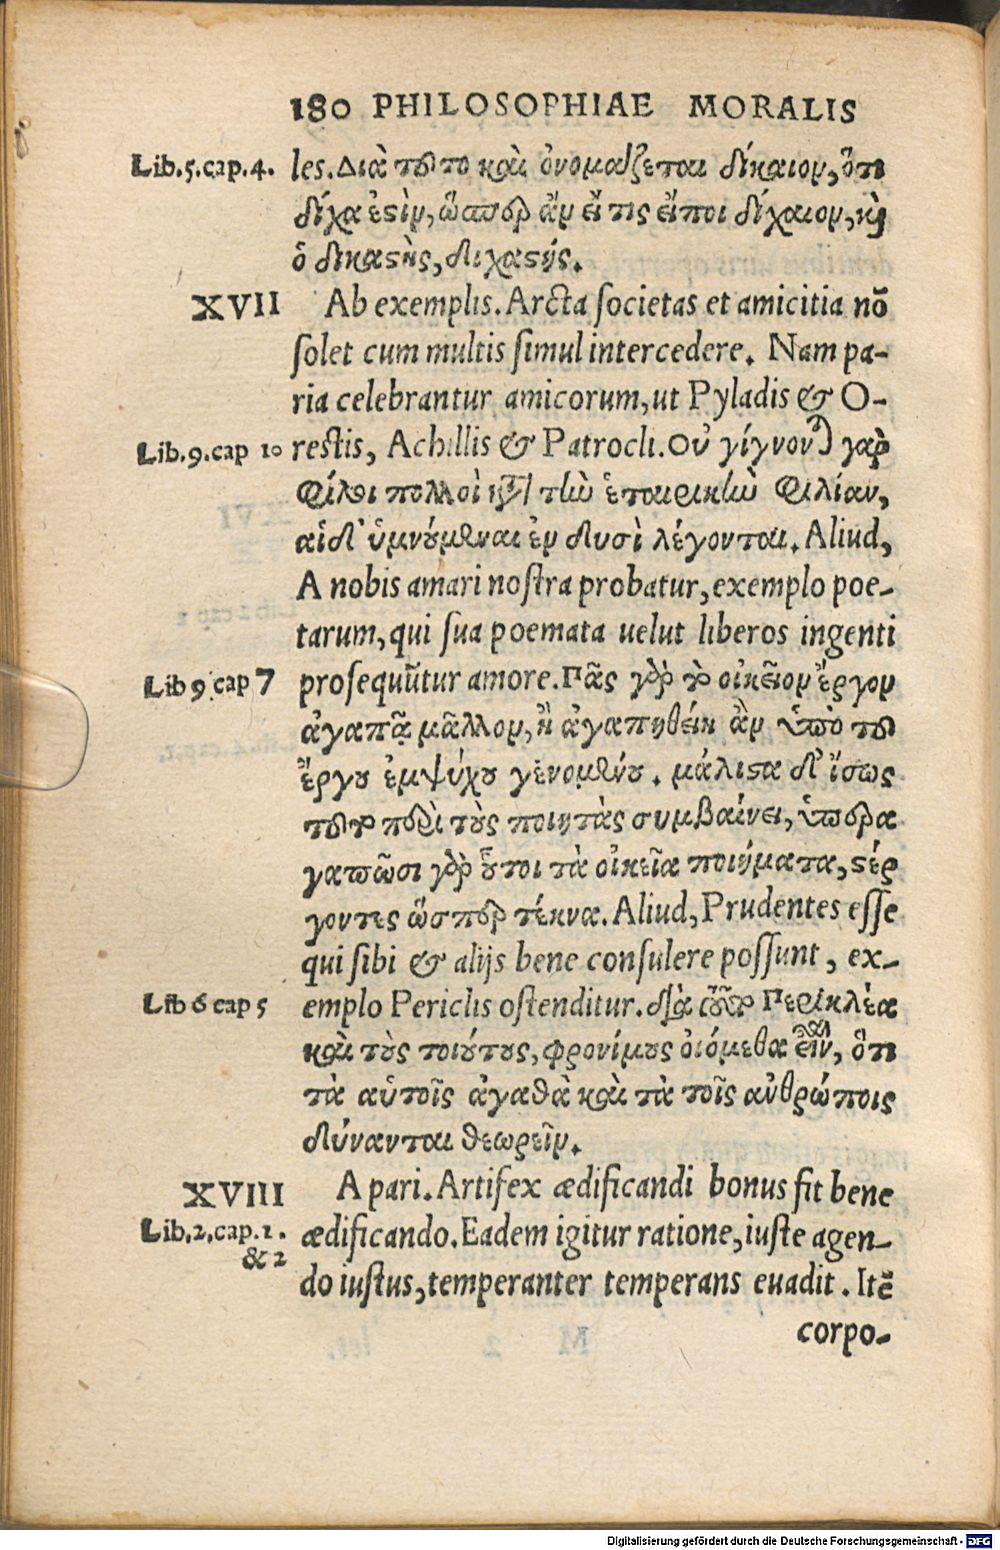 180 PHILOSOPHIAE MORALIS
Lib.5.cap.4. les. Διὰ τοῦτο καὶ ὀνομάζεται δίκαιον, ὅτι
δίχα ἐστὶν, ὥσπερ ἂν εἴ τις εἴποι δίχαιον, καὶ
ὁ δικαστὴς, διχαστής.
XVII Ab exemplis. Arcta societas et amicitia nō
solet cum multis simul intercedere. Nam pa-
ria celebrantur amicorum, ut Pyladis & O-
Lib.9.cap 10 restis, Achillis & Patrocli. Οὐ γίγνονται γὰρ
φίλοι πολλοὶ κατὰ τὴν ἑταιρικὴν φιλίαν,
αἱ δ' ὑμνούμεναι ἐν δυσὶ λέγονται. Aliud,
A nobis amari nostra probatur, exemplo poe-
tarum, qui sua poemata uelut liberos ingenti
Lib 9. cap 7 prosequūtur amore. Πᾶς γὰρ τὸ οἰκεῖον ἔργον
ἀγαπᾷ μᾶλλον, ἢ ἀγαπηθείη ἂν ὑπὸ τοῦ
ἔργου ἐμψύχου γενομένου. μάλιστα δ' ἴσως
τοῦτο περὶ τοὺς ποιητὰς συμβαίνει, ὑπερα
γαπῶσι γὰρ οὗτοι τὰ οἰκεῖα ποιήματα, στέρ
γοντες ὥσπερ τέκνα. Aliud, Prudentes esse
qui sibi & alijs bene consulere possunt, ex-
Lib 6 cap 5 emplo Periclis ostenditur. διὰ τοῦτο Περικλέα
καὶ τοὺς τοιούτους, φρονίμους οἰόμεθα εἶναι, ὅτι
τὰ αὑτοῖς ἀγαθὰ καὶ τὰ τοῖς ἀνθρώποις
δύνανται θεωρεῖν.
XVIII A pari. Artifex ædificandi bonus fit bene
Lib.2.cap.1. ædificando. Eadem igitur ratione, iuste agen-
& 2 do iustus, temperanter temperans euadit. Itē
corpo-
Digitalisierung gefördert durch die Deutsche Forschungsgemeinschaft - DFG